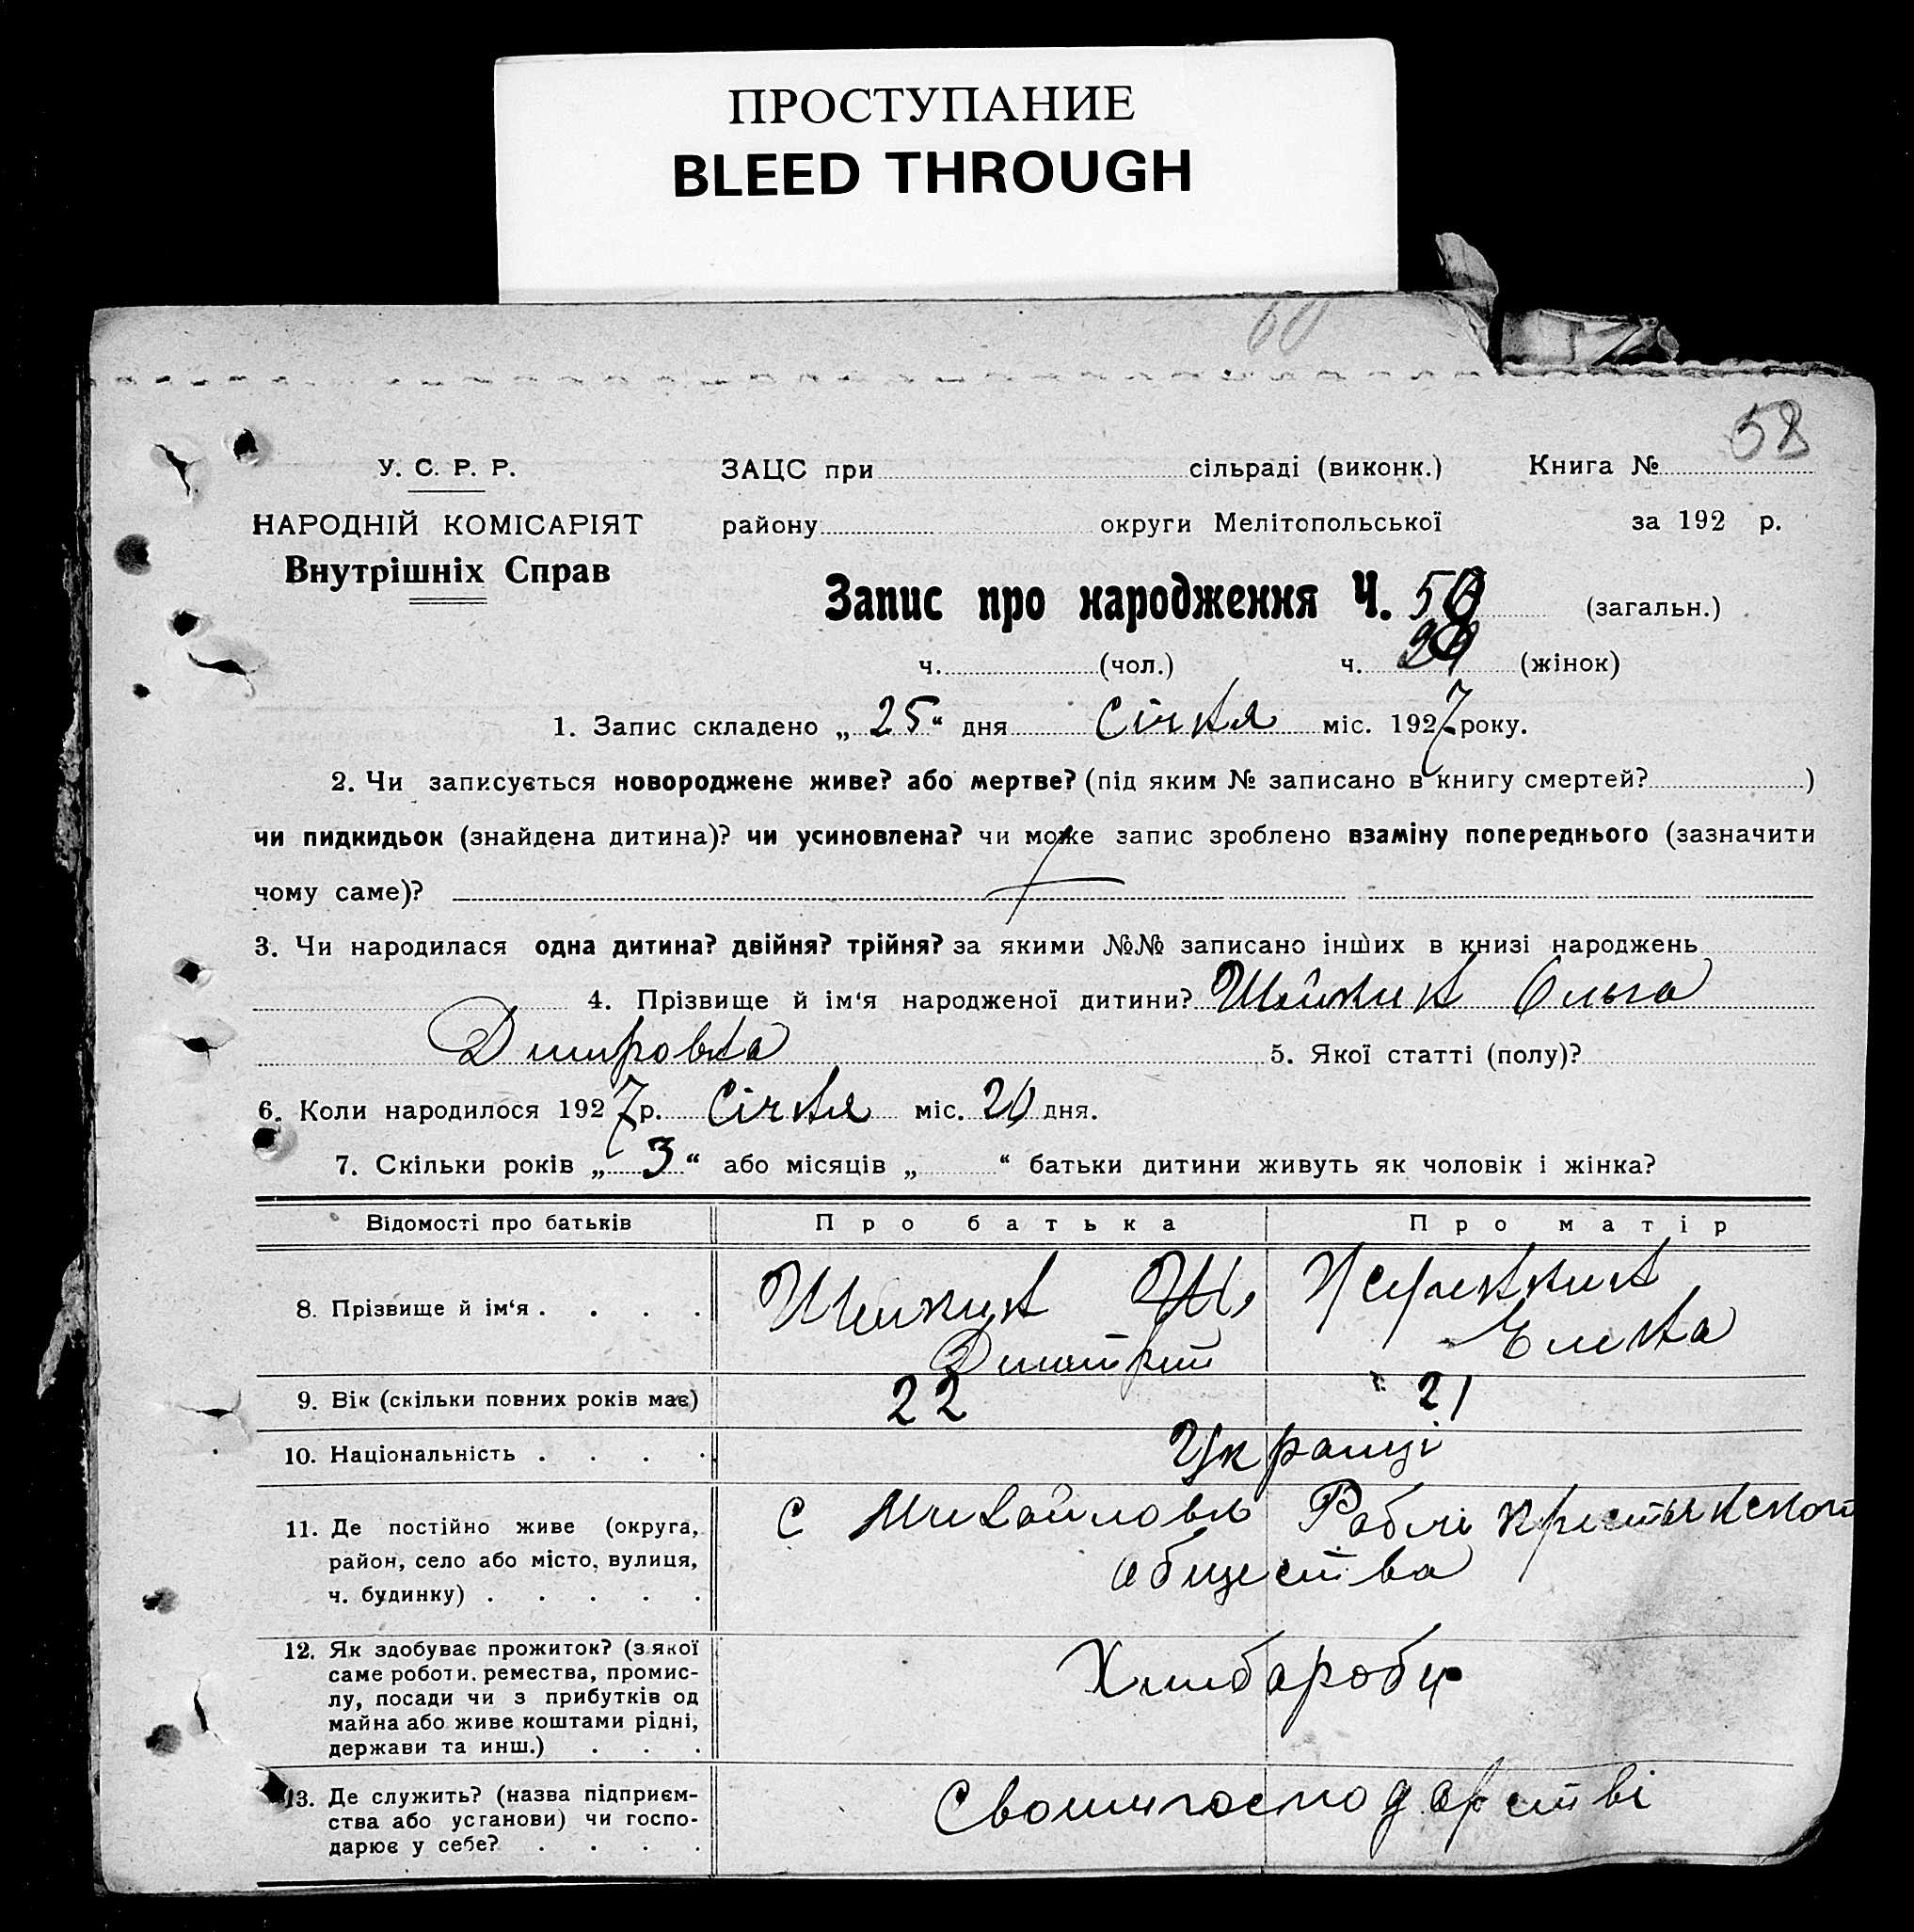 ПРОСТУПАНИЕ
BLEED THROUGH
58
У. С. Р. Р.
ЗАЦС при сільраді (виконк.) Книга №
НАРОДНІЙ КОМІСАРІЯТ
району округи Мелітопольської за 192 р.
Внутрішніх Справ
Запис про народження Ч. (загальн.)
ч. (чол.) ч. (жінок)
1. Запис складено „ 25 “ дня Січня міс. 1927 року.
2. Чи записується новороджене живе? або мертве? (під яким № записано в книгу смертей? )
чи пидкидьок (знайдена дитина)? чи усиновлена? чи може запис зроблено взаміну попереднього (зазначити
чому саме)?
3. Чи народилася одна дитина? двійня? трійня? за якими №№ записано інших в книзі народжень
4. Прізвище й ім‘я народженої дитини? Ольга
5. Якої статті (полу)?
6. Коли народилося 1927 р. Січня міс. 20 дня.
7. Скільки років „ 3 “ або місяців „ “ батьки дитини живуть як чоловік і жінка?
Відомості про батьків Про батька Про матір
8. Прізвище й ім‘я . . . .
Дмитрий
9. Вік (скільки повних років має) 22 21
10. Національність . . . . Украинці
11. Де постійно живе (округа, с
район, село або місто, вулиця, общества
ч. будинку) . . . . .
12. Як здобуває прожиток? (з якої
саме роботи, ремества, промис-
лу, посади чи з прибутків од
майна або живе коштами рідні,
держави та инш.) . . .
13. Де служить? (назва підприєм-
ства або установи) чи госпо-
дарює у себе? . . . .